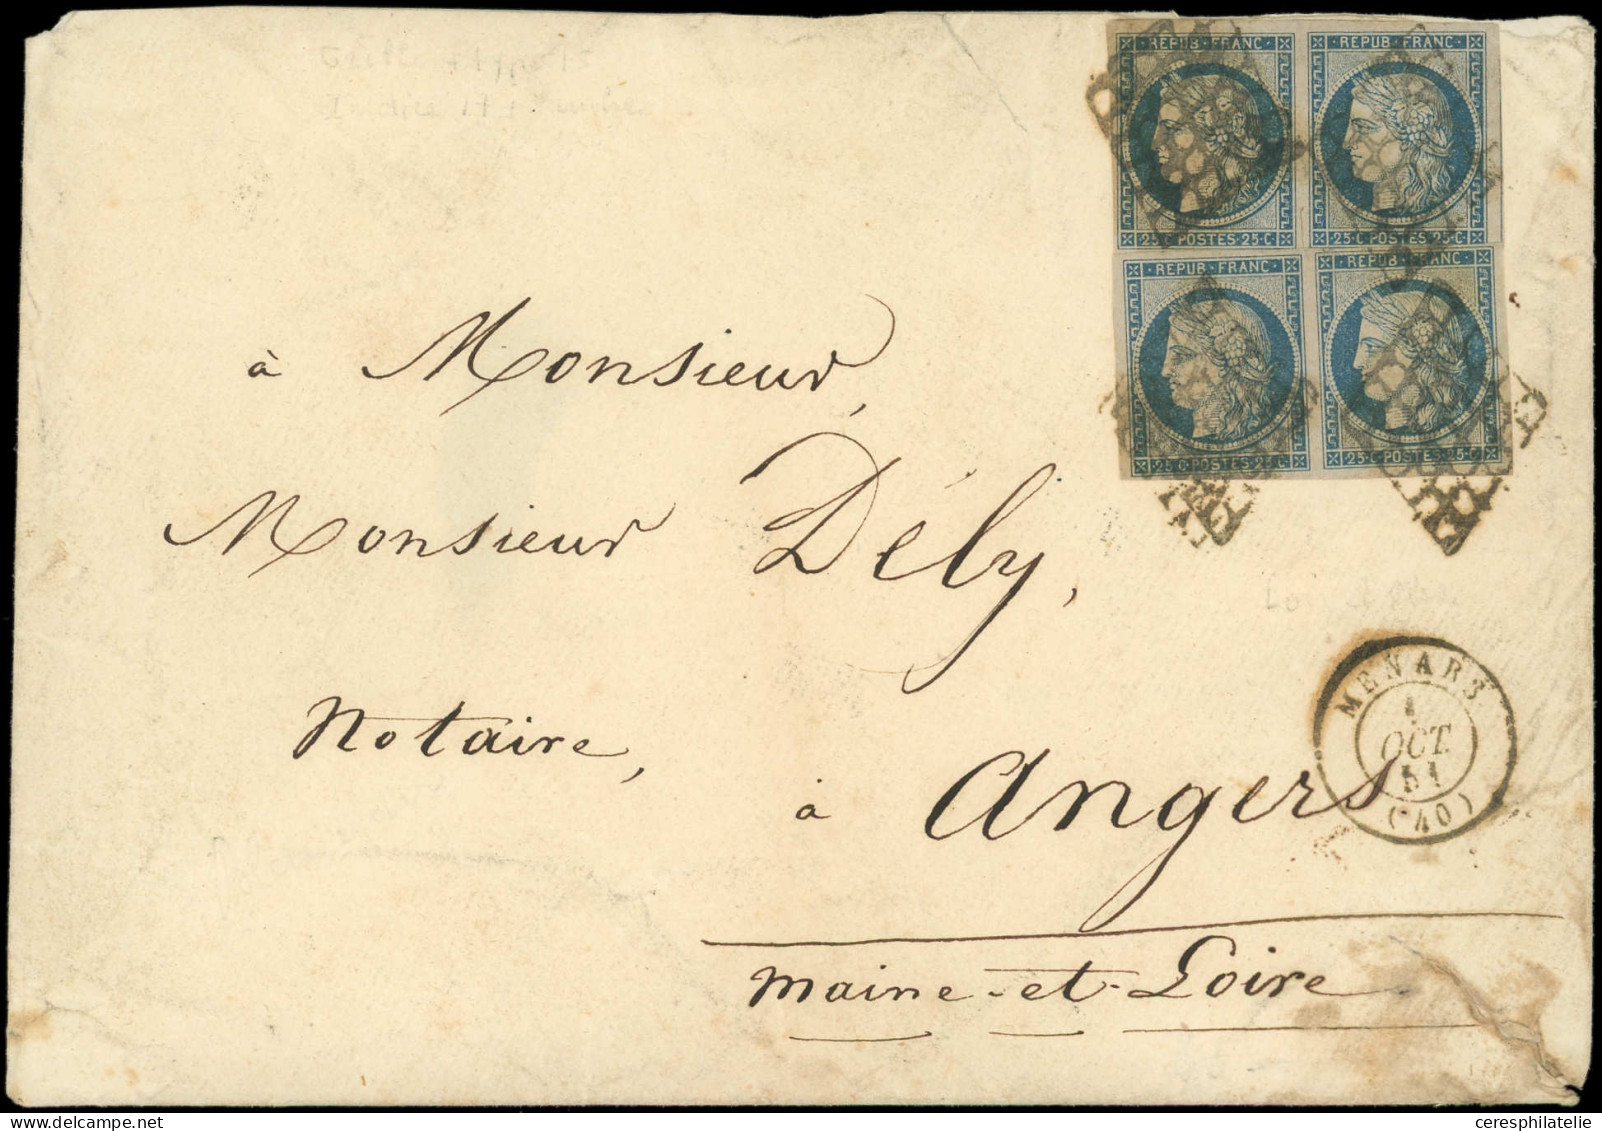 REPUB·FRANC·
REPUB·FRANC·
25·C·POSTES·25·C
25·C·POSTES·25·C
REPUB·FRANC·
REPUB·FRANC·
25·C·POSTES·25·C
25·C·POSTES·25·C
à Monsieur,
Monsieur Dély,
Notaire,
à Angers
Maine-et-Loire
MENARS
1
OCT.
51
(40)
ceresphilatelie